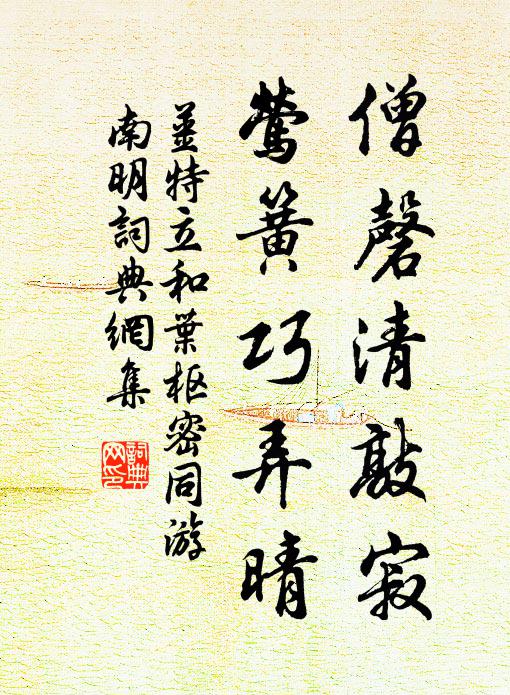 僧磬清敲寂
莺簧巧弄晴
姜特立和葉枢密同游
南明詞典網集
詞典
网印